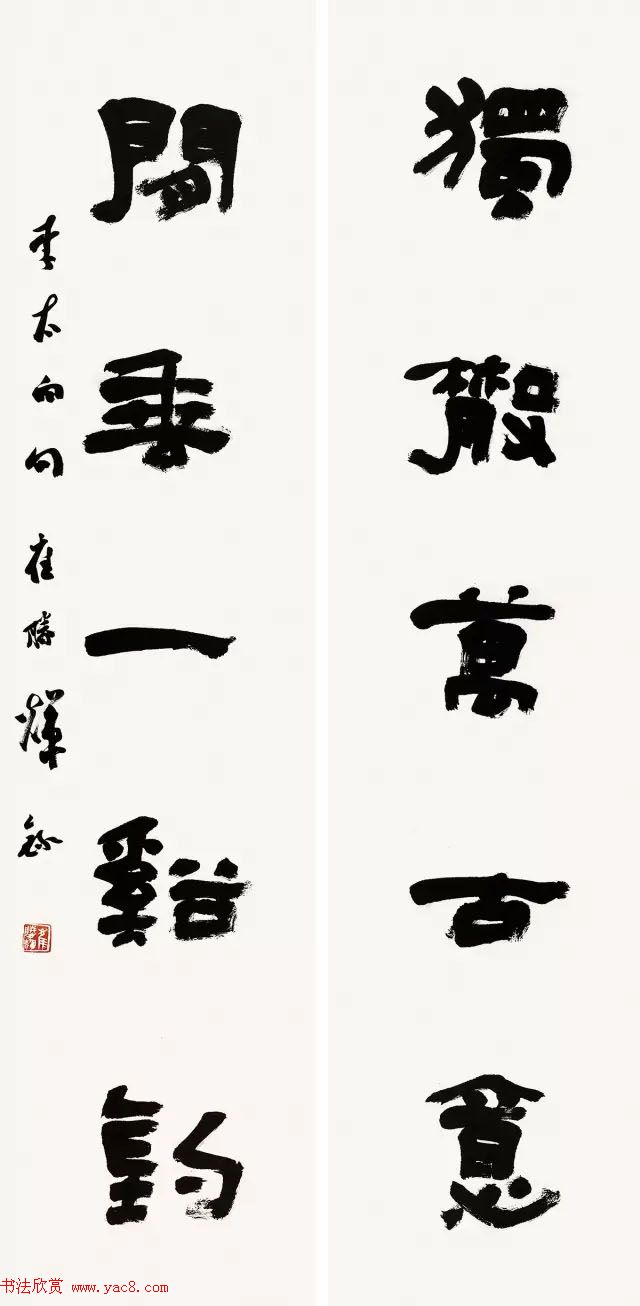 獨散萬古意
閒垂一谿釣
李太白句 崔勝輝錄
书法欣赏 www.yac8.com